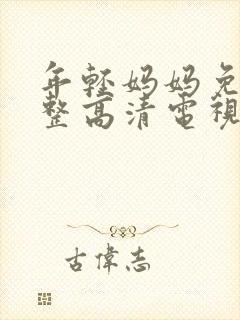 年輕媽媽免
整高清電視
古偉志